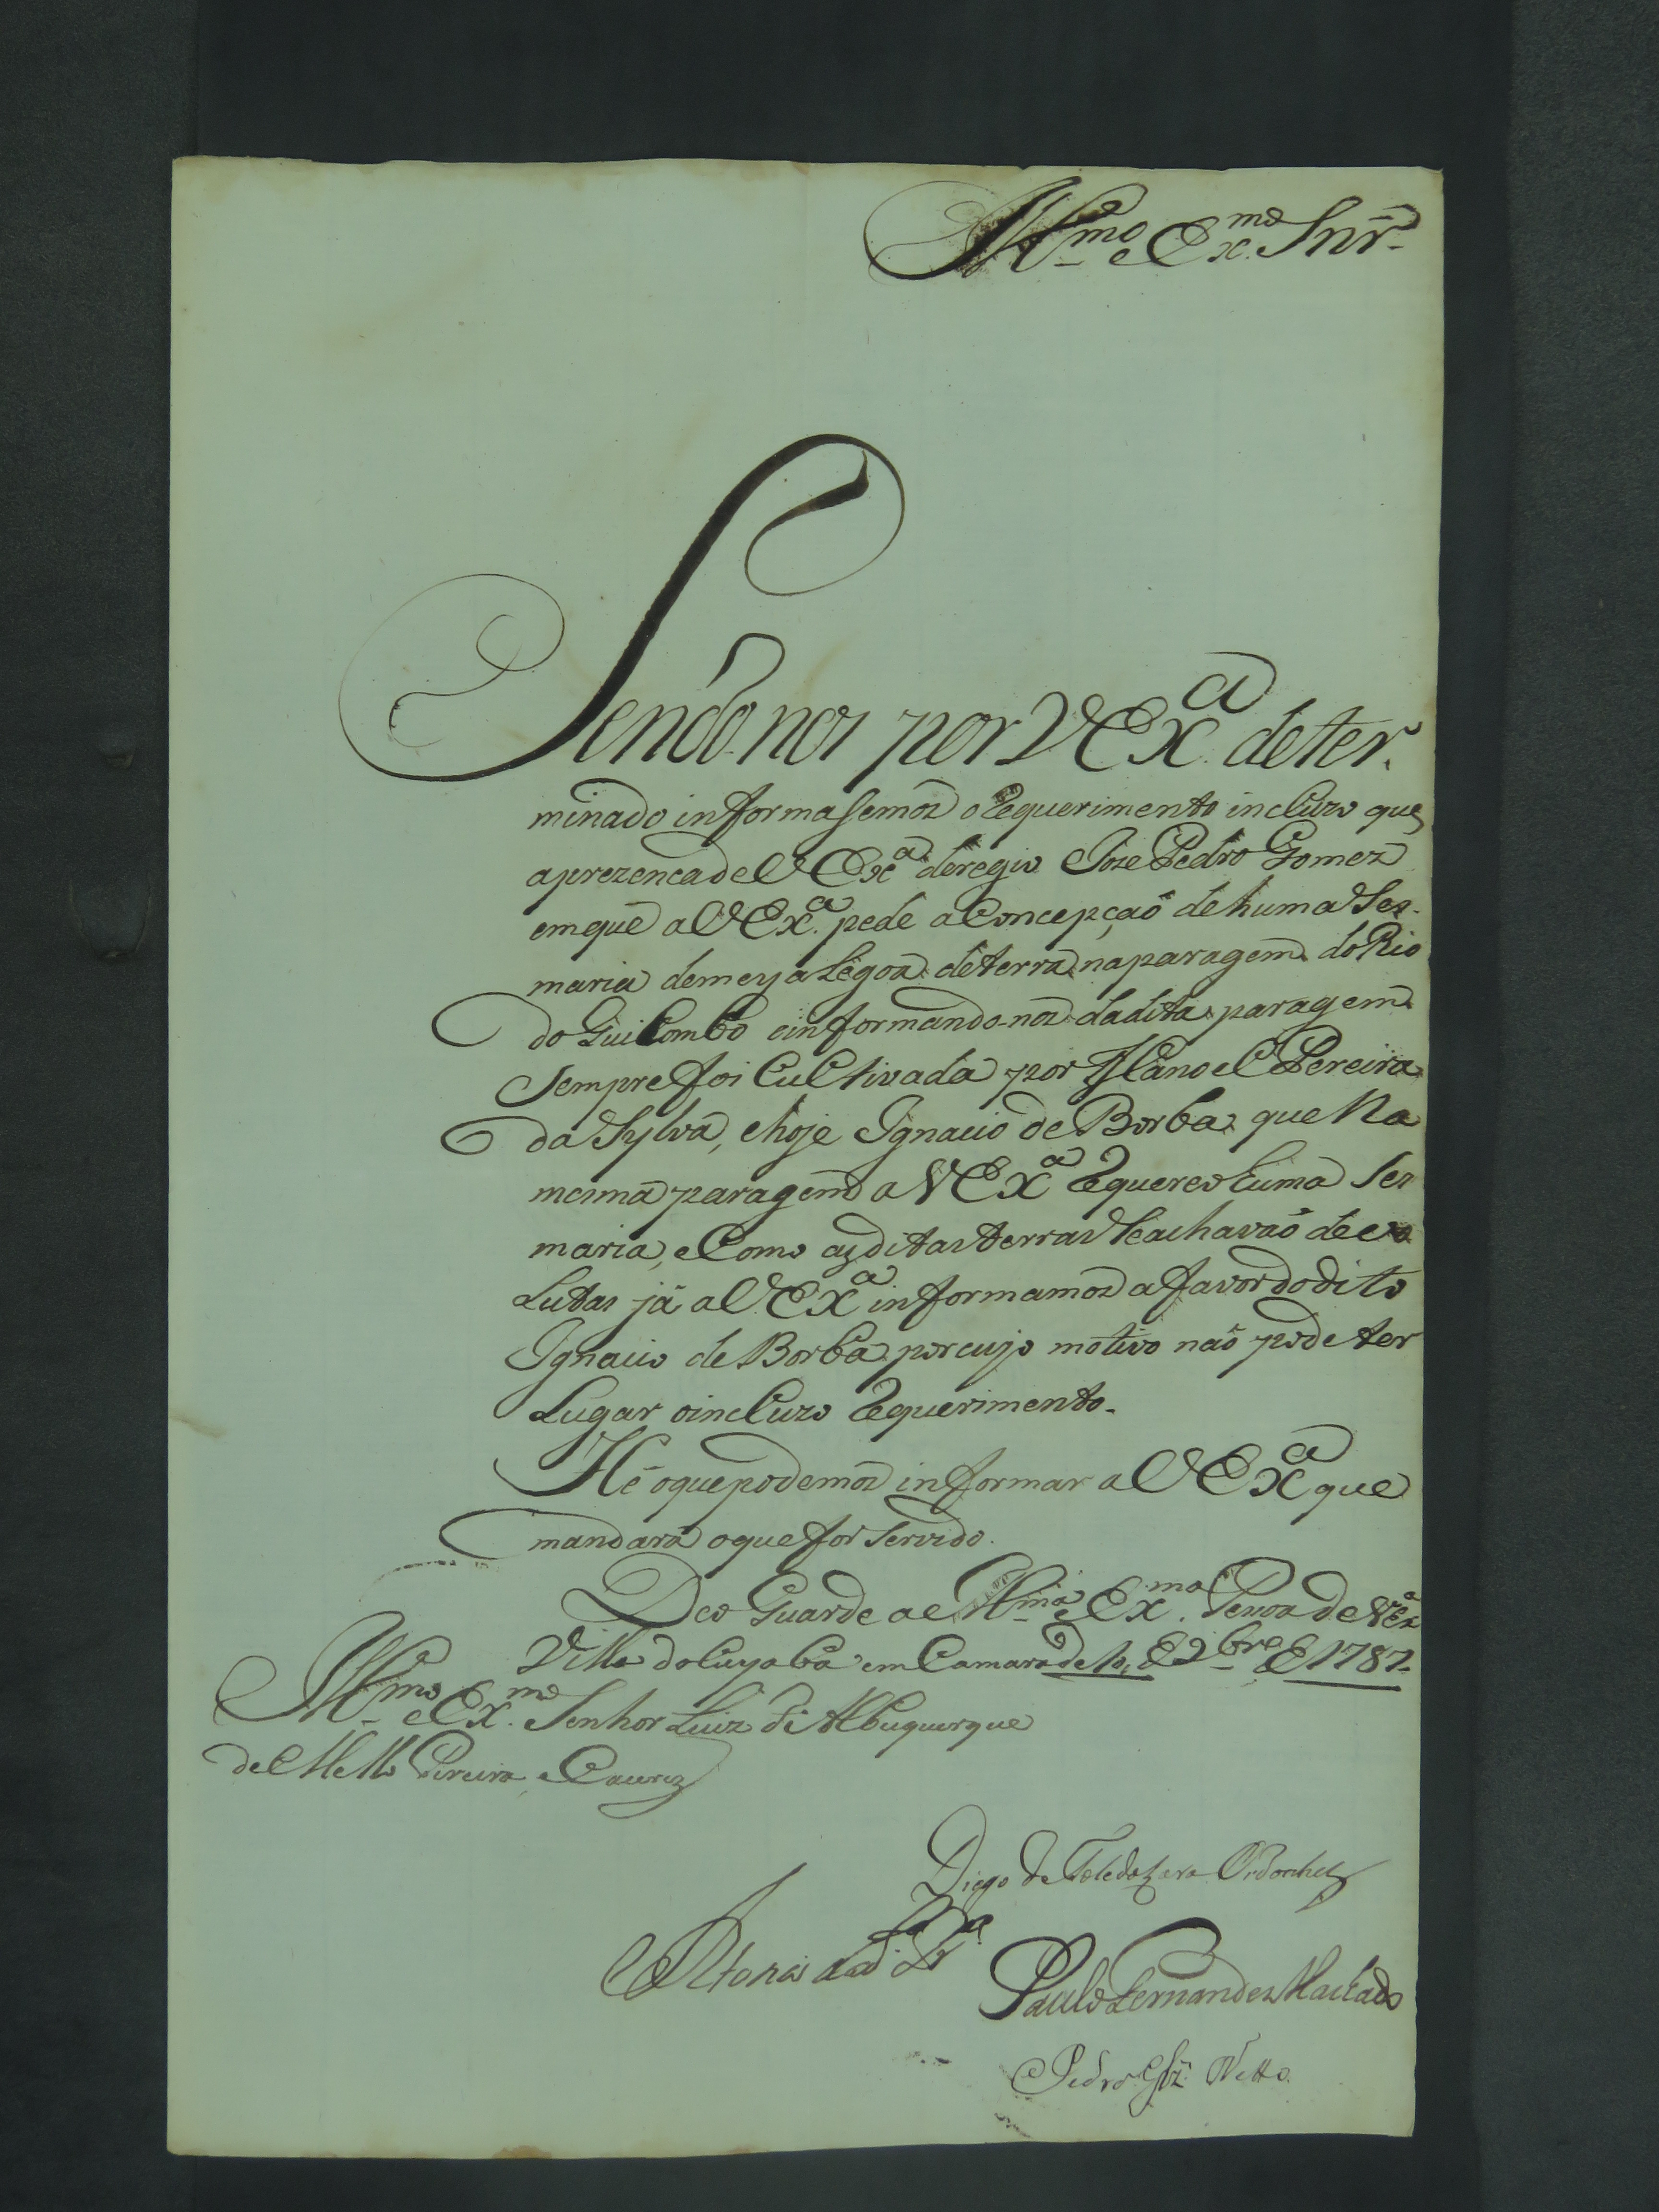 Illmo e Exmo Snr
Sendo nos por VExa deter.
minado informasemos o Requerimento incluzo que
aprezenca de VExa deregio Joze Pedro Gomez
emque a VExa pede a Concepção de huma Ses-
maria de meya Legoa de terra na paragem do Rio
do Guilombo e informando-nos da dita paragem
Sempre foi Cultivada por Manoel Pereira
da Sylva, e hoje Ignacio de Borba que Na
mesma paragem a VExa Requereo huma Ses
maria, e Como as ditas terras Se achavão devo
Lutas já a VExa informamos a favor do dito
Ignacio de Borba por cujo motivo não pode ter
Lugar o incluzo Requerimento.
Hé o que podemos informar a VExa que
mandará o que for Servido.
Deos Guarde a Illma e Exma Pessoa de VExa
Villa do Cuyabá em Camara de 10 de de 1787
Illmo e Exmo Senhor Luiz de Albuquerque
de Mello Pereira e Caceres
Diogo de Toledo Lara Ordonhez
Antonio da
Paulo Fernandez Machado
Pedro Netto